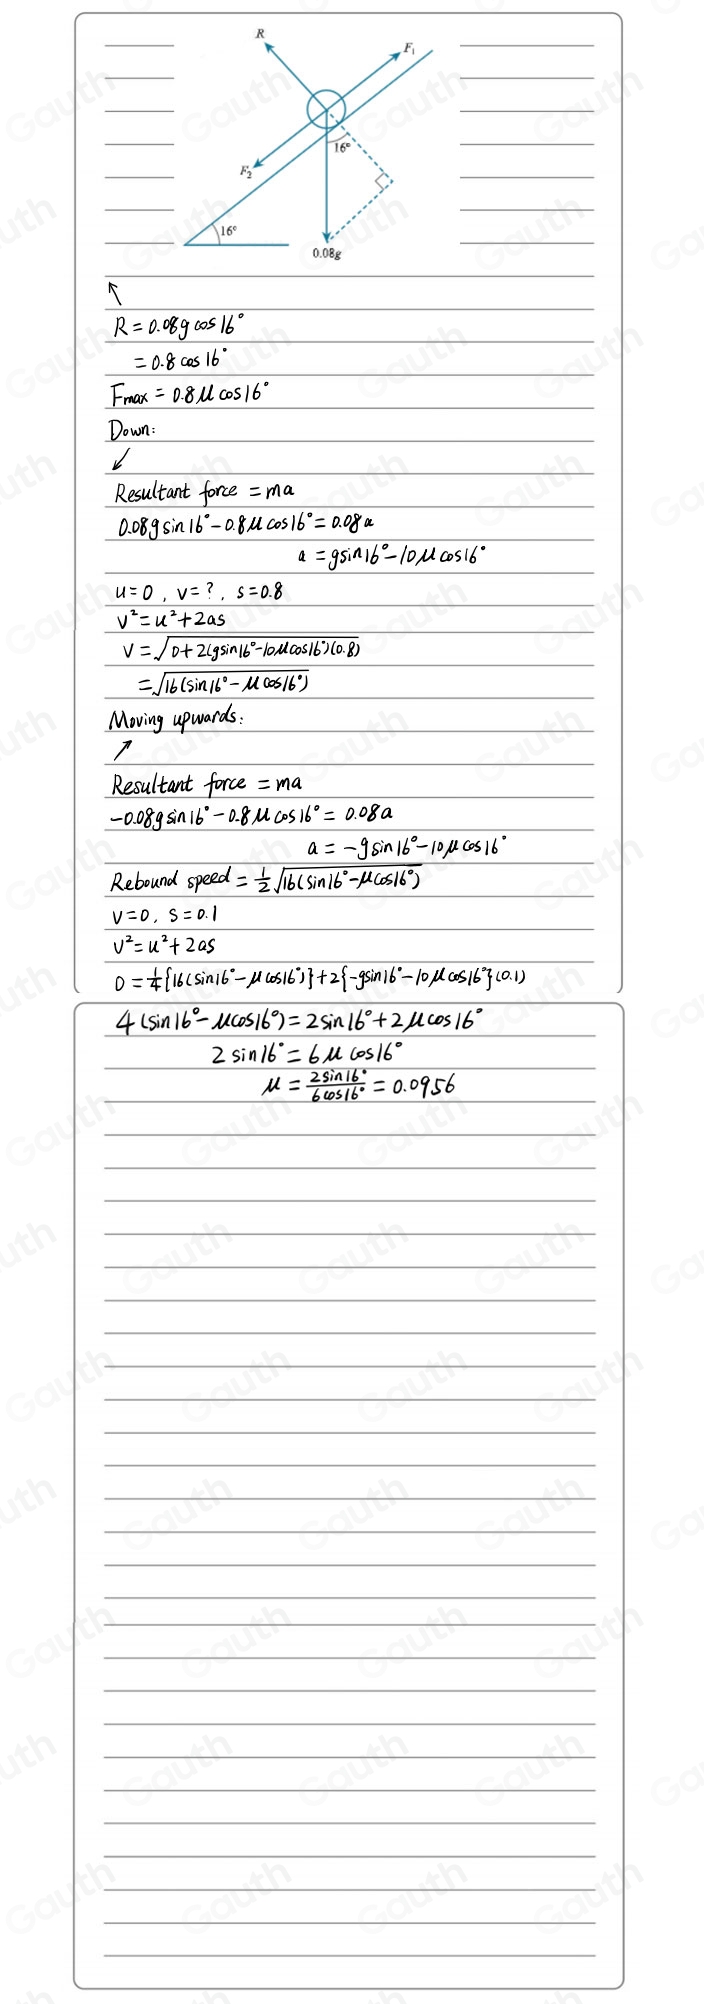 R
F₁
16°
F₂
16°
0.08g
↖
R = 0.08g cos 16°
= 0.8 cos 16°
Fmax = 0.8μ cos 16°
Down:
↙
Resultant force = ma
0.08g sin 16° - 0.8μ cos 16° = 0.08a
a = g sin 16° - 10μ cos 16°
u = 0, v = ?, s = 0.8
v² = u² + 2as
v = √(0 + 2(g sin 16° - 10μ cos 16°)(0.8))
= √(16(sin 16° - μ cos 16°))
Moving upwards:
↗
Resultant force = ma
-0.08g sin 16° - 0.8μ cos 16° = 0.08a
a = -g sin 16° - 10μ cos 16°
Rebound speed = ½√(16(sin 16° - μ cos 16°))
v = 0, s = 0.1
v² = u² + 2as
0 = ¼{16(sin 16° - μ cos 16°)} + 2{-g sin 16° - 10μ cos 16°}(0.1)
4(sin 16° - μ cos 16°) = 2 sin 16° + 2μ cos 16°
2 sin 16° = 6μ cos 16°
μ = 2 sin 16° / 6 cos 16° = 0.0956
Gauth